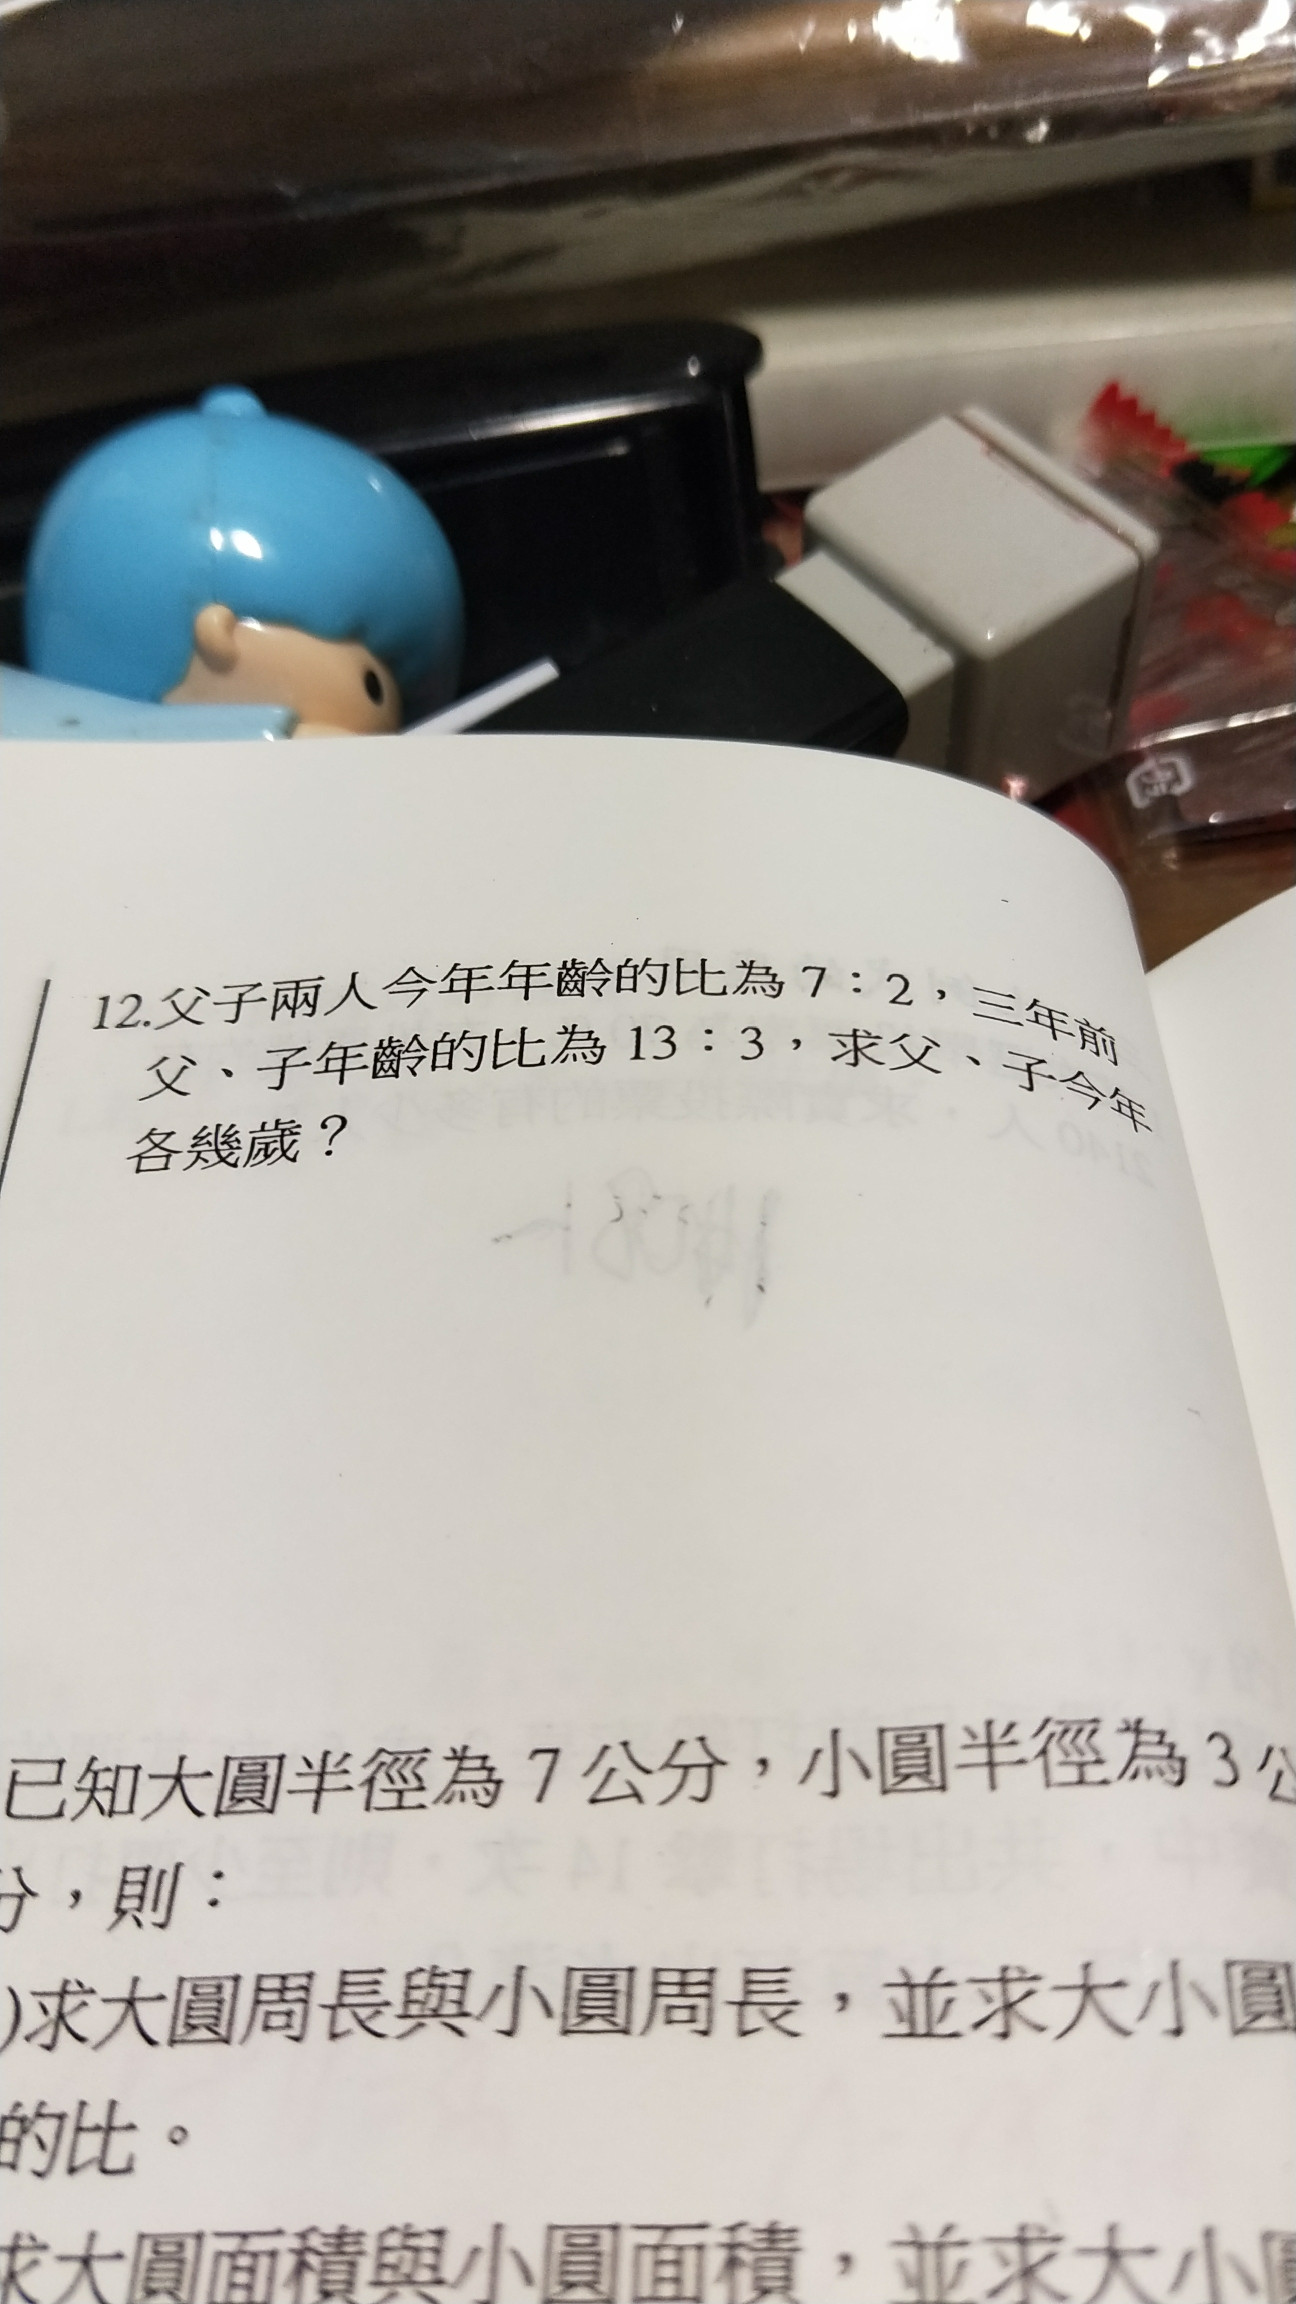 12.父子兩人今年年齡的比為 7：2，三年前
父、子年齡的比為 13：3，求父、子今年
各幾歲？
已知大圓半徑為 7 公分，小圓半徑為 3 公
分，則：
)求大圓周長與小圓周長，並求大小圓
的比。
求大圓面積與小圓面積，並求大小圓